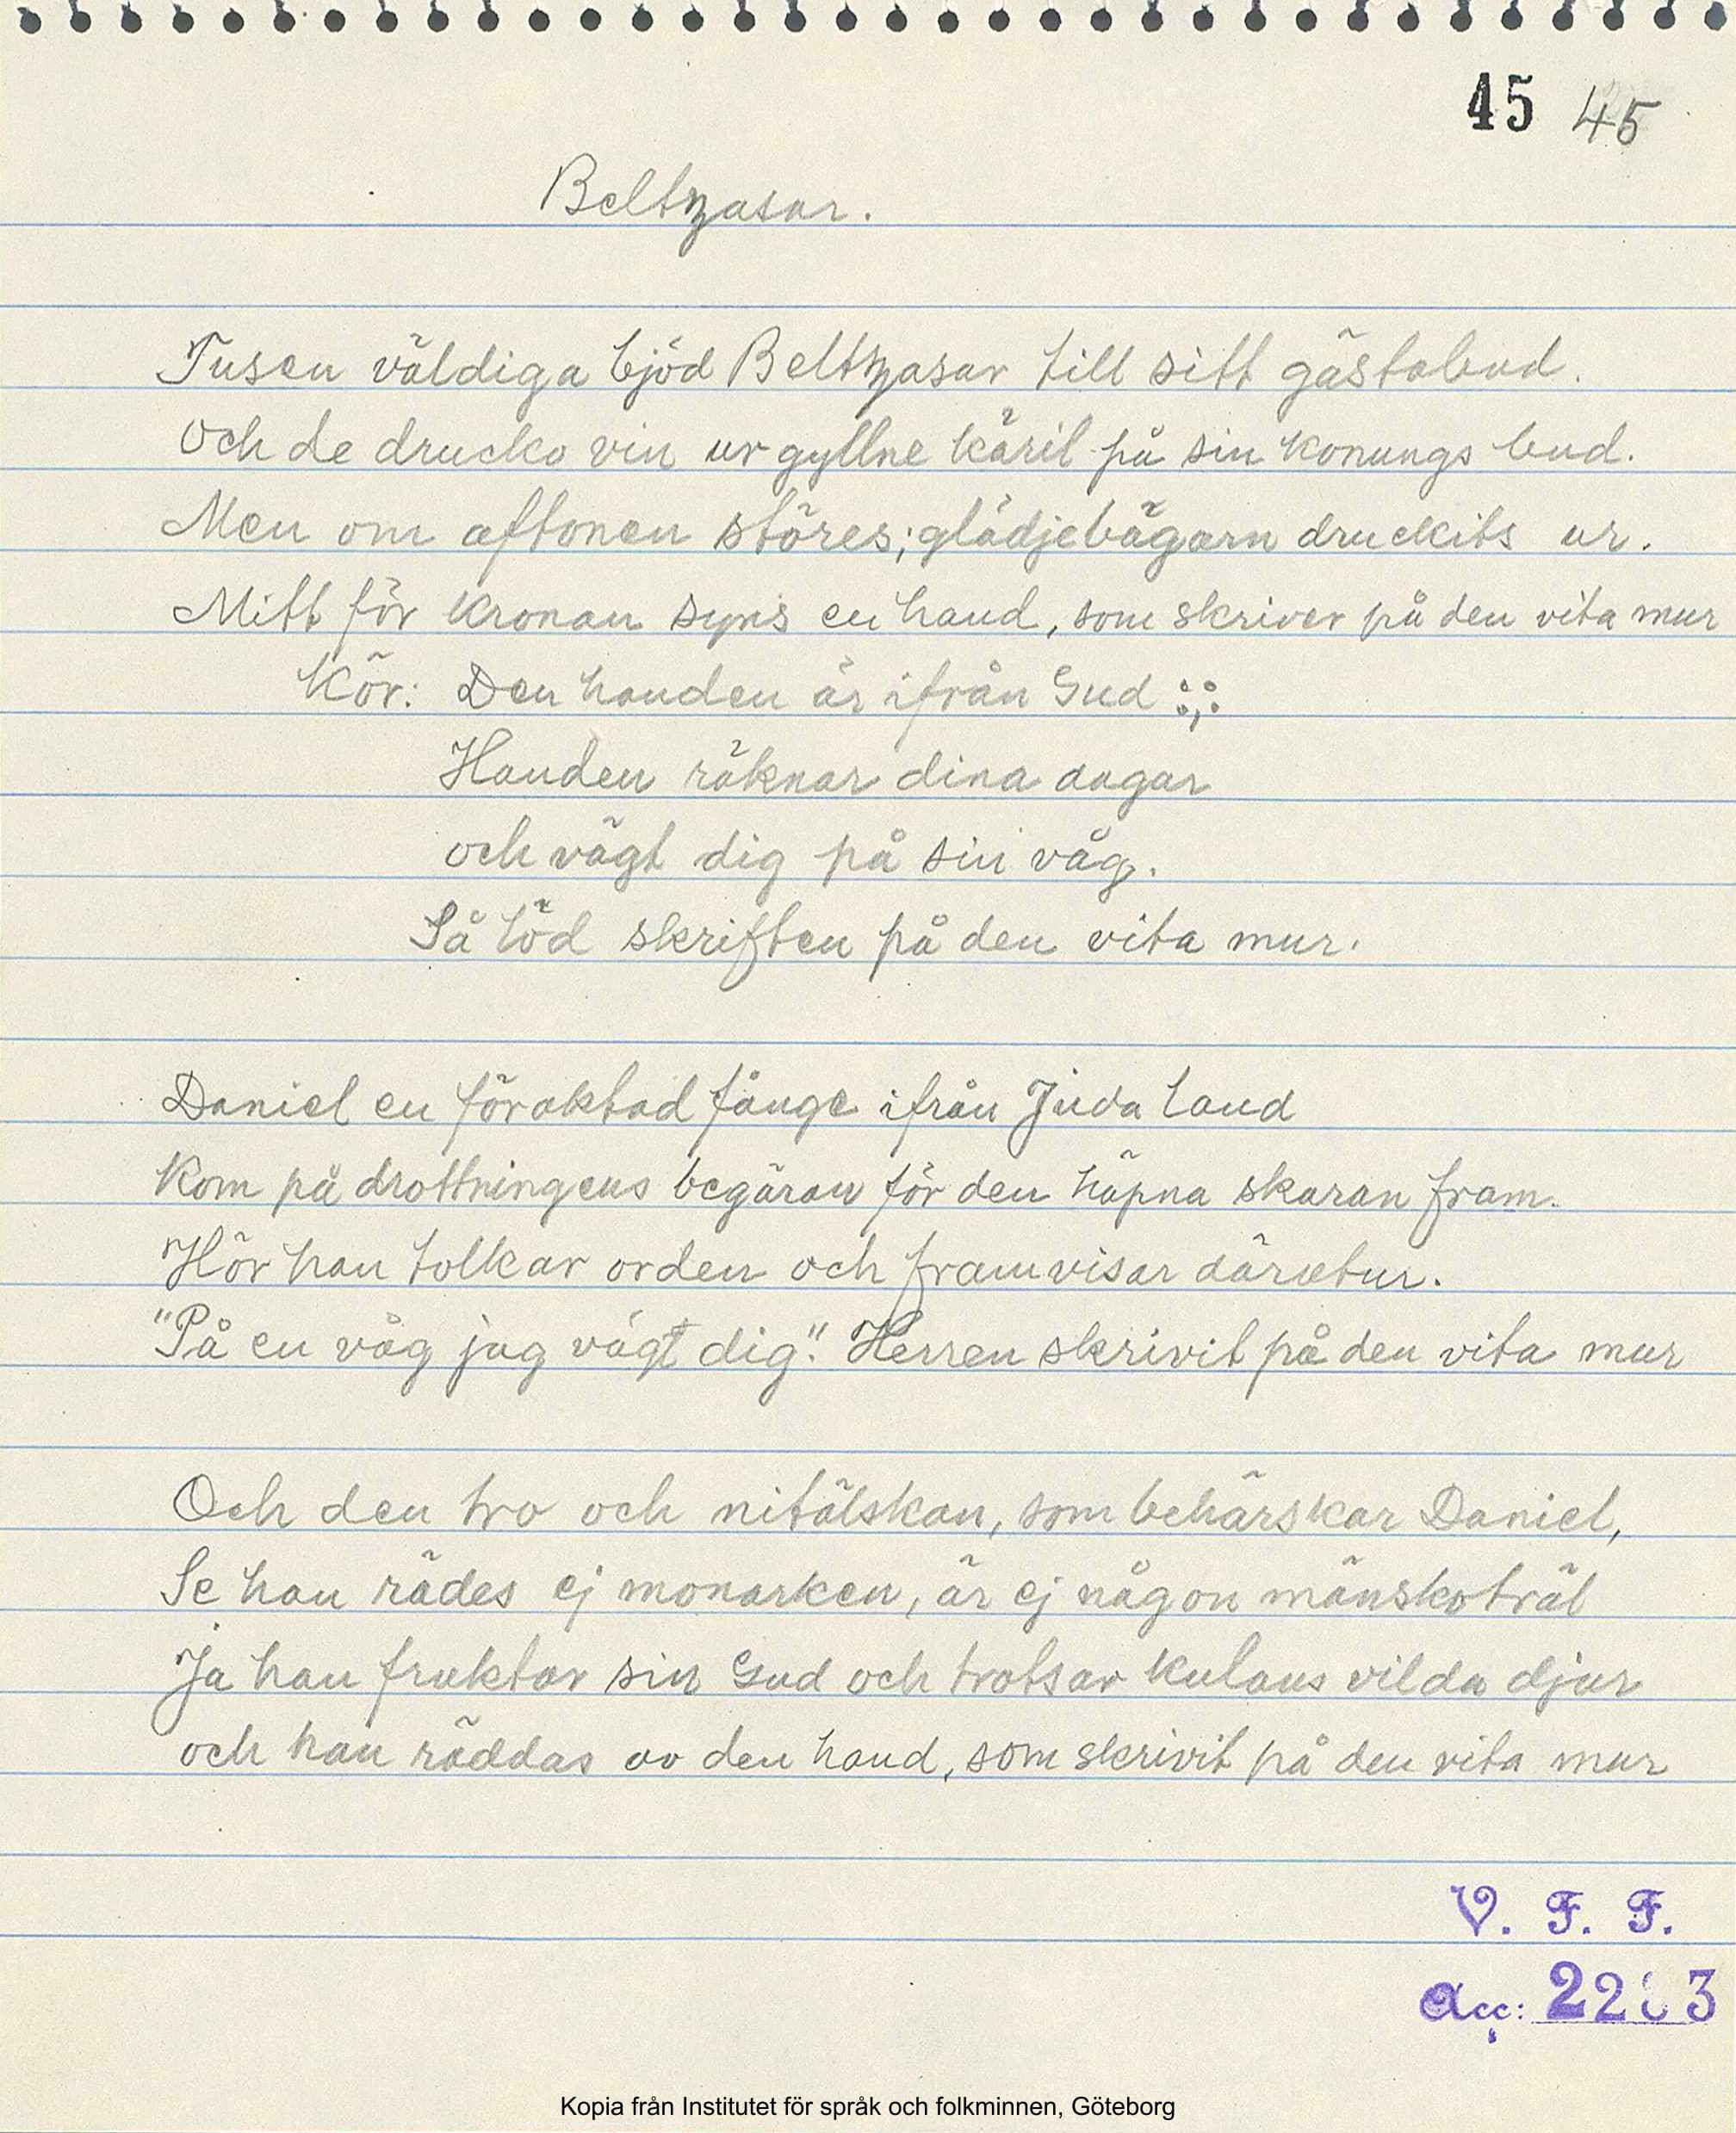 45 45
Beltzasar.
Tusen väldiga bjöd Beltzasar till sitt gästabud.
Och de drucko vin ur gyllne käril på sin konungs bud.
Men om aftonen störes; glädjebägarn druckits ur.
Mitt för kronan syns en hand, som skriver på den vita mur
Kör: Den handen är ifrån Gud :,:
Handen räknar dina dagar
och vägt dig på sin våg.
Så löd skriften på den vita mur.
Daniel en föraktad fånge ifrån Juda land
Kom på drottningens begäran för den häpna skaran fram.
Hör han tolkar orden och framvisar därutur.
"På en våg jag vägt dig". Herren skrivit på den vita mur
Och den tro och nitälskan, som behärskar Daniel,
Se han rädes ej monarken, är ej någon mänskoträl
Ja han fruktar sin Gud och trotsar kulans vilda djur
och han räddas av den hand, som skrivit på den vita mur
V. F. F.
Acc:
Kopia från Institutet för språk och folkminnen, Göteborg